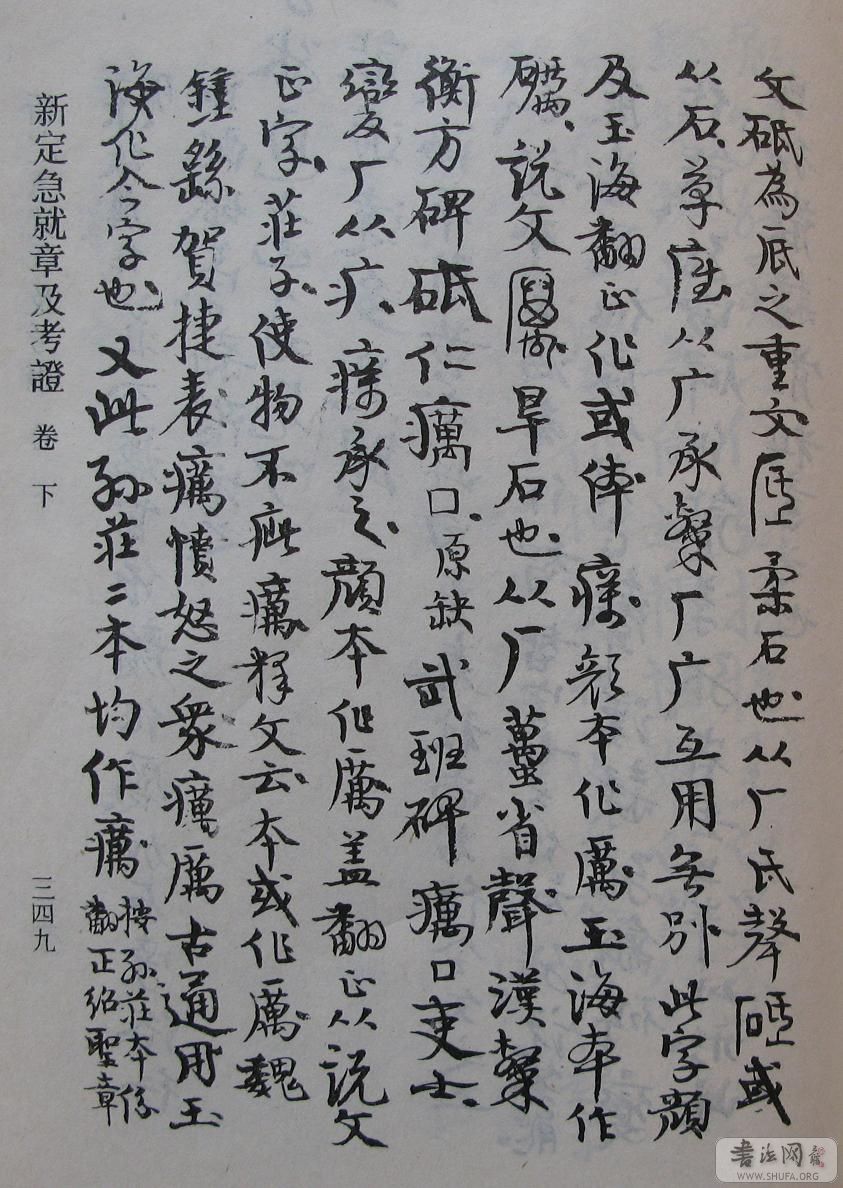 文砥為底之重文㕆柔石也从厂氐聲砥或
从石草𤵸从广承𣪠厂广互用無別此字顏
及玉海翻正作或体𤻲顏本作厲玉海本作
礪說文旱石也从厂蠆省聲漢隸
衡方碑砥仁癘口原缺武班碑癘口吏士
變厂从疒𤻲承之顏本作厲蓋翻正从說文
正字莊子使物不疵癘釋文云本或作厲魏
鍾繇賀捷表癘憤怒之眾癘厲古通用玉
海作今字也又此孫莊二本均作癘
按孫莊本係
翻正紹聖章
新定急就章及考證 卷 下
三四九
書法网
WWW.SHUFA.ORG